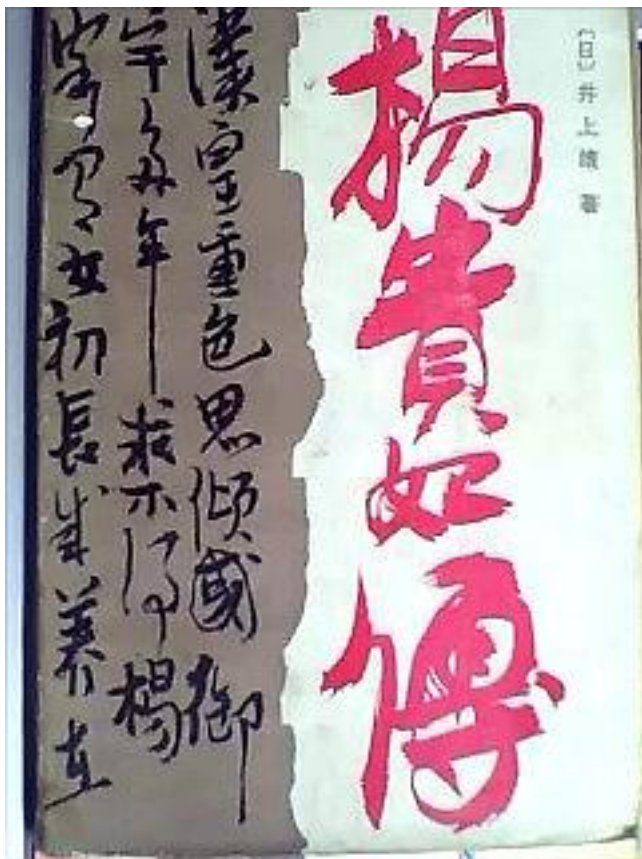 〔日〕井上靖 著
楊貴妃傳
漢皇重色思傾國御
宇多年求不得楊
家有女初長成養在